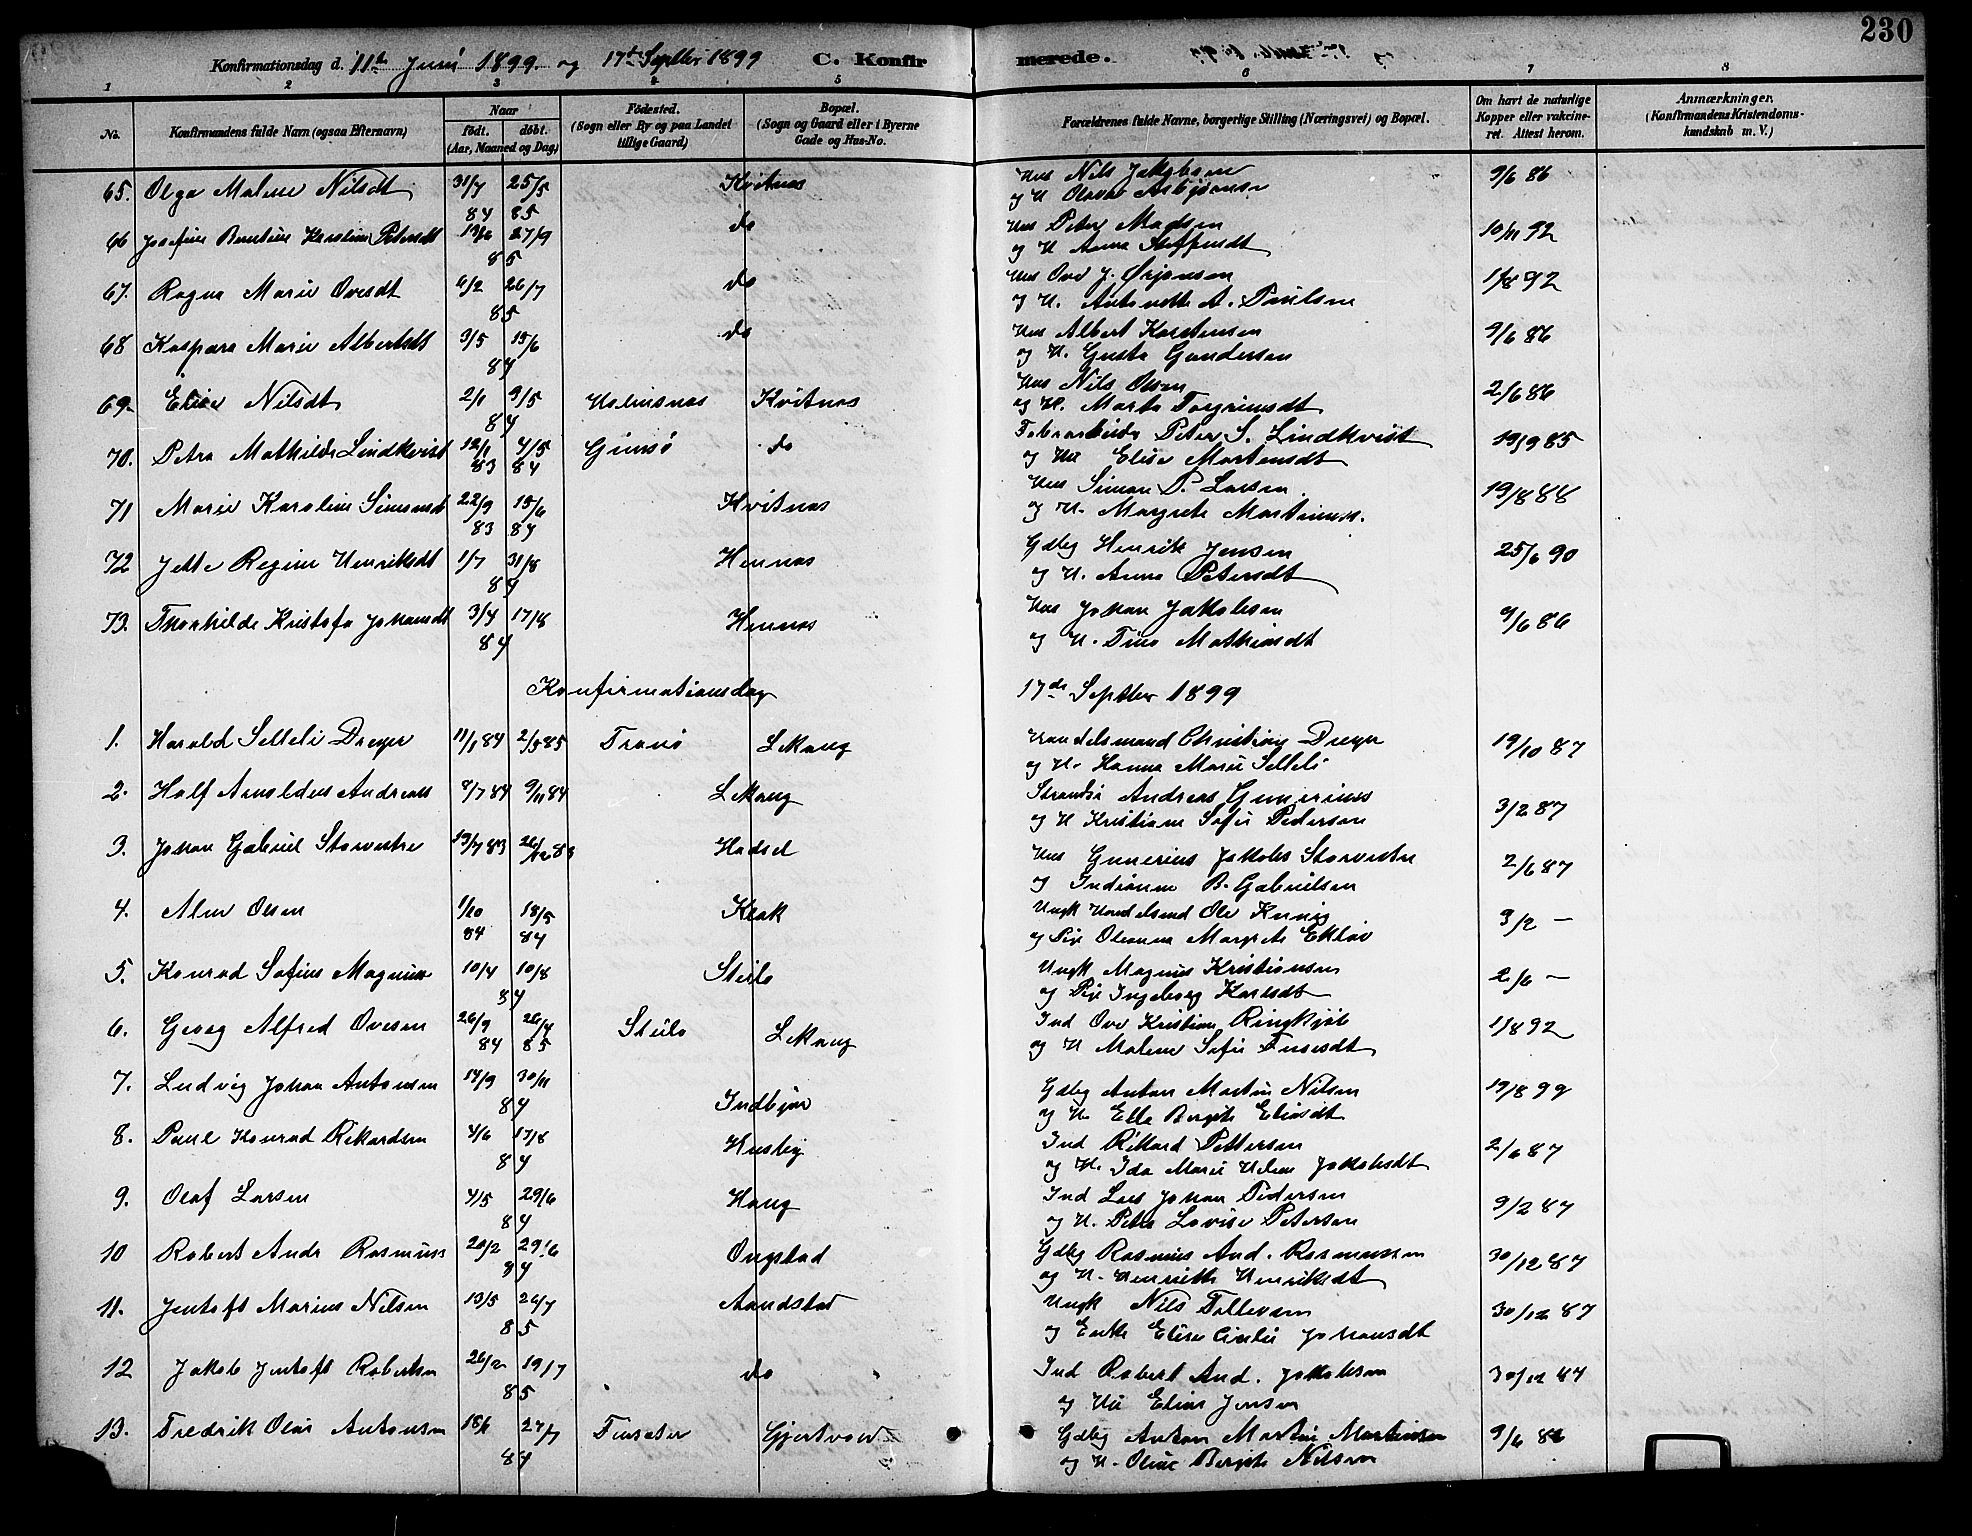 230
Konfirmationsdag d. 11te Juni 1899 og 17de Septbr 1899 C. Konfirmerede.
1 2 3 4 5 6 7 8
No. Konfirmandens fulde Navn (ogsaa Efternavn) Naar født. døbt. (Aar, Maaned og Dag) Fødested. (Sogn eller By og paa Landet tillige Gaard) Bopæl. (Sogn og Gaard eller i Byerne Gade og Hus-No. Forældrenes fulde Navne, borgerlige Stilling (Næringsvei) og Bopæl. Om havt de naturlige Kopper eller vakcineret. Attest herom. Anmærkninger. (Konfirmandens Kristendomskundskab m. V.)
65. Olga Malene Nilsdt 31/7 84 25/5 85 Kvitnes Hus Nils Jakobsen 9/6 86
og H Olava Asbjørnse
66 Josefine Berntine Karoline Petersdt 27/9 85 do Hus Peter Madsen 10/11 92
og H Anna Steffensdt
67. Ragna Marie Ovesdt 6/2 26/7 85 do Hus Ove J. Ørjansen 1/8 92
og H. Antonette A. Paulsen
68 Kaspara Marie Albertsdt 3/5 15/6 84 do Hus Albert Karstensen 9/6 86
og H. Gusta Gundersen
69. Elise Nilsdt 2/1 9/5 84 Holmsnes Kvitnes Hus Nils Olsen 2/6 86
og H. Marta Torgrimsdt
70. Petra Mathilde Lindkvist 12/1 83 4/5 84 Gimsø do Peter S. Lindkvist 19/9 85
og Hu Elise Mortensdt
71 Marie Karoline Simonsdt 22/9 83 15/6 84 Kvitnes Hus Simon P. Larsen 19/8 88
og H. Margrete Martinusd.
72 Jette Regine Henriksdt 1/7 31/8 84 Hennes Gdbg Henrik Jensen 25/6 90
og H. Anna Petersdt
73. Thorhilde Kristofa Johansdt 3/4 17/8 84 Hennes Hus Johan Jakobsen 9/6 86
og H. Tina Mathiasdt
Konfirmationsdag 17de Septbr 1899
1. Harald Selleli Dreyer 11/1 84 2/5 85 Tranø Lekang Handelsmand Christian Dreyer 19/10 87
og H. Hanna Marie Selleli
2. Half Arnoldus Andreas 7/7 84 9/11 84 Lekang Strands. Andreas Gunerius 3/2 87
og H Kristiane Sofie Pedersen
3. Johan Gabriel Storvestre 19/7 83 26/12 83 Hadsel Hus Gunerius Jakobs Storvestre 2/6 87
og Indianne B. Gabrielsen
4. Alm Olsen 1/20 84 18/5 84 Kleak Ungk Handelsmd Ole Kunig 3/2 —
og Pige Oleanna Margrete Ekløv
5. Konrad Sofius Magnus 10/4 10/8 84 Steilo Ungk Magnus Kristiansen 2/6 —
og Pige Ingeborg Karlsdt
6. Georg Alfred Ovesen 26/9 84 26/4 85 Steilo Lekang Ind Ove Kristian Ringkjøb 1/8 92
og H Malene Sofie
7. Ludvig Johan Antonsen 14/9 30/11 84 Indbjør Gdbg Anton Martin Nilsen 19/8 99
og H. Ella Bergite Eliasdt
8. Paul Konrad Rikardsen 4/6 17/8 84 Husby Ind Rikard Pettersen 2/6 87
og H. Ida Marie Helene Jakobsdt
9. Olaf Larsen 4/5 29/6 84 Haug Ind Lars Johan Pedersen 9/2 87
og H. Petra Lovise Petersen
10 Robert Andr Rasmuss 20/2 29/6 84 Ongstad Gdbg Rasmus And. Rasmussen 30/12 87
og H. Henriette Henriksdt
11. Jentoft Marius Nilsen 13/5 26/7 85 Aandstad Ungk Nils Tollevsen 30/12 87
og Enke Elise Cecilie Johansdt
12 Jakob Jentoft Robertsn 26/2 19/7 85 do Ind Robert And. Jakobsen 30/12 87
og Hu Elise Jensen
13. Fredrik Olai Antonsen 18/1 27/7 84 Finsæter Gjertvold Gdbg Anton Martin Martinsen 9/6 86
og H. Oline Bergite Nilsen